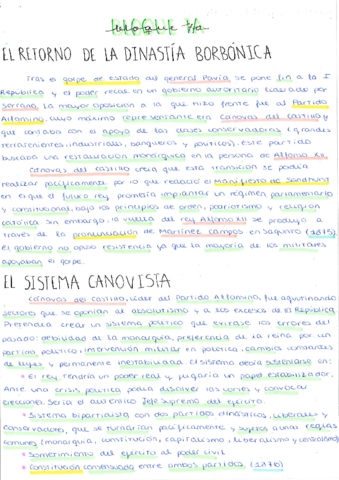 EL RETORNO DE LA DINASTÍA BORBÓNICA
Tras el golpe de estado del general Pavía se pone fin a la I
República y el poder recae en un gobierno autoritario liderado por
Serrano. La mayor oposición a la que hizo frente fue al Partido
Alfonsino, cuyo máximo representante era Cánovas del Castillo y
que contaba con el apoyo de las clases conservadoras (grandes
terratenientes, industriales, banqueros y políticos). Este partido
buscaba una restauración monárquica en la persona de Alfonso XII.
Cánovas del Castillo creía que esta transición se podía
realizar pacíficamente por lo que redactó el Manifiesto de Sandhurst
en el que el futuro rey prometía implantar un régimen parlamentario
y constitucional, bajo los principios de orden, patriotismo y religión
católica. Sin embargo, la vuelta del rey Alfonso XII se produjo a
través de la pronunciación de Martínez Campos en Sagunto (1875).
El gobierno no opuso resistencia ya que la mayoría de los militares
apoyaban el golpe.
EL SISTEMA CANOVISTA
Cánovas del Castillo, líder del Partido Alfonsino, fue aglutinando
sectores que se oponían al absolutismo y a los excesos de la República.
Pretendía crear un sistema político que evitase los errores del
pasado: debilidad de la monarquía, preferencia de la reina por un
partido político, intervención militar en política, cambios constantes
de leyes y permanente inestabilidad. El sistema debía sostenerse en:
* El rey tendría un poder real y jugaría un papel estabilizador.
Ante una crisis política podía disolver las cortes y convocar
elecciones. Sería el auténtico Jefe Supremo del ejército.
* Sistema bipartidista con dos partidos dinásticos, liberales y
conservadores, que se turnarían pacíficamente y sujetos a unas reglas
comunes (monarquía, constitución, capitalismo, liberalismo y centralismo)
* Sometimiento del ejército al poder civil
* Constitución consensuada entre ambos partidos. (1876)